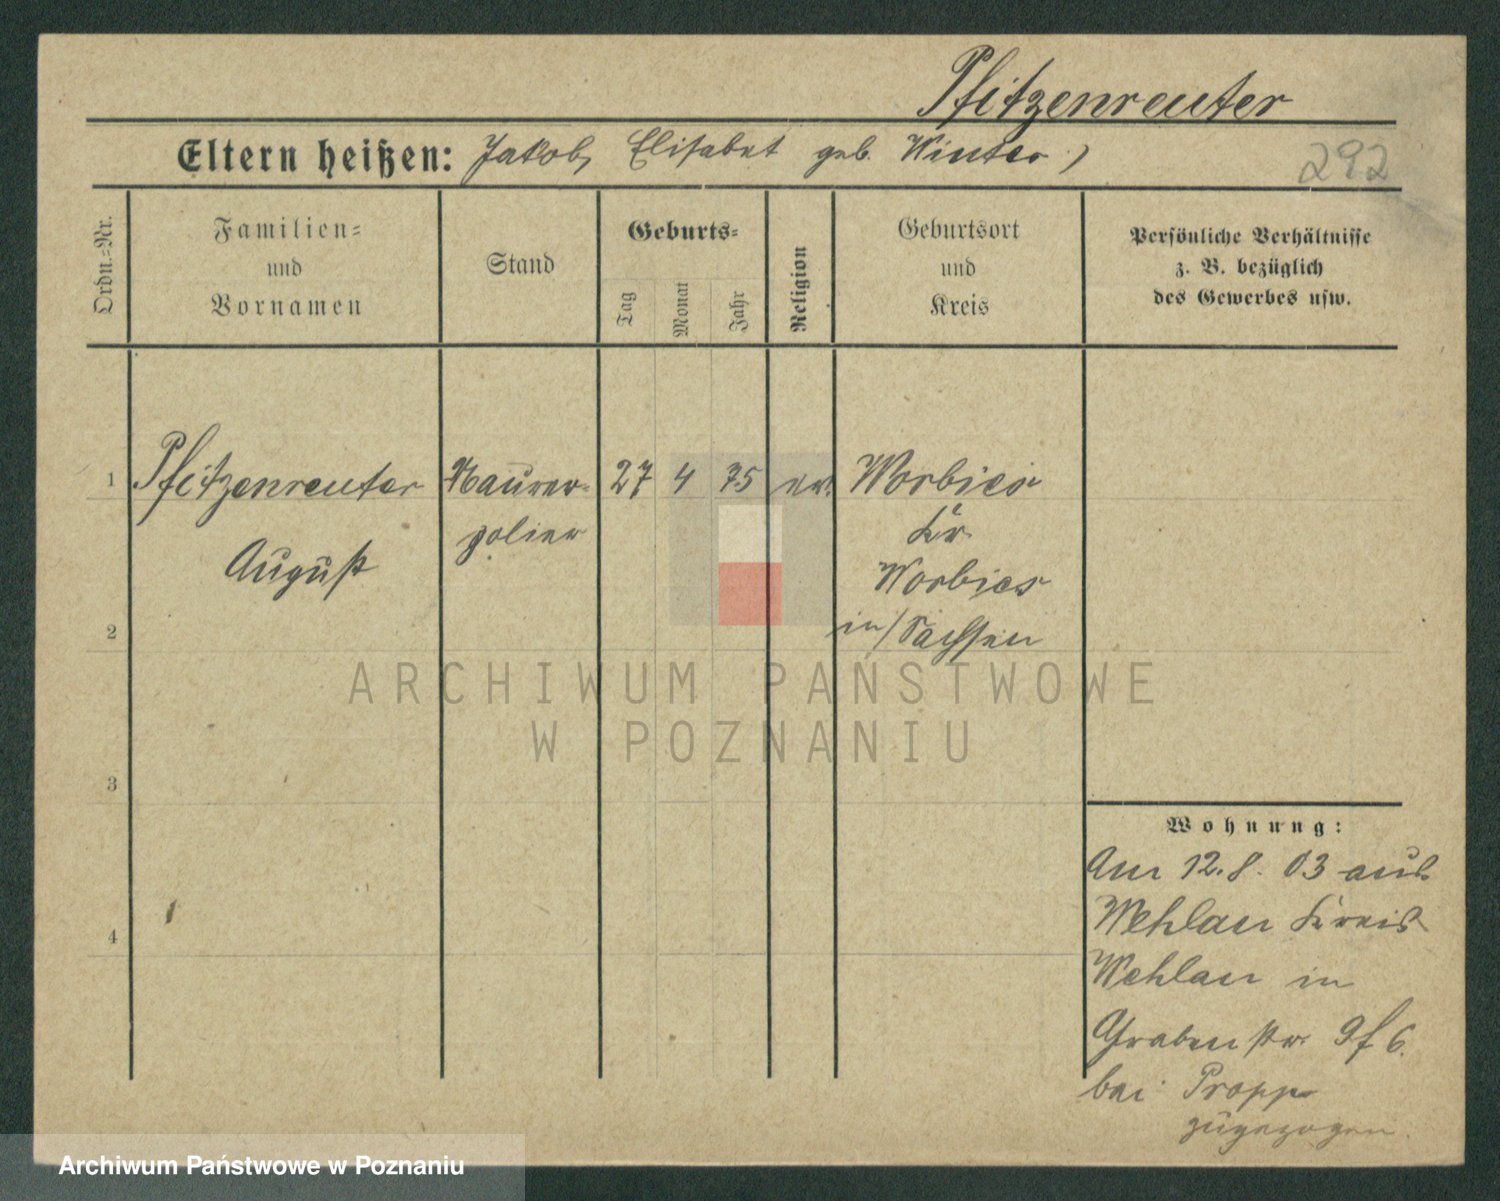 Pfitzenreuter
Eltern heißen: Jakob, Elisabet geb. Winter,
292
Ordn.-Nr.
Familien-
und
Vornamen
Stand
Geburts-
Tag
Monat
Jahr
Religion
Geburtsort
und
Kreis
Persönliche Verhältnisse
z. B. bezüglich
des Gewerbes usw.
1 Pfitzenreuter Maurer- 27 4 75 ev. Worbies
polier Kr.
August Worbies
2 in/Sachsen
3
4
Wohnung:
Am 12.8.03 aus
Wehlau Kreis
Wehlau in
Grabenstr. 9f 6.
bei Propp
zugezogen.
ARCHIWUM PAŃSTWOWE
W POZNANIU
Archiwum Państwowe w Poznaniu